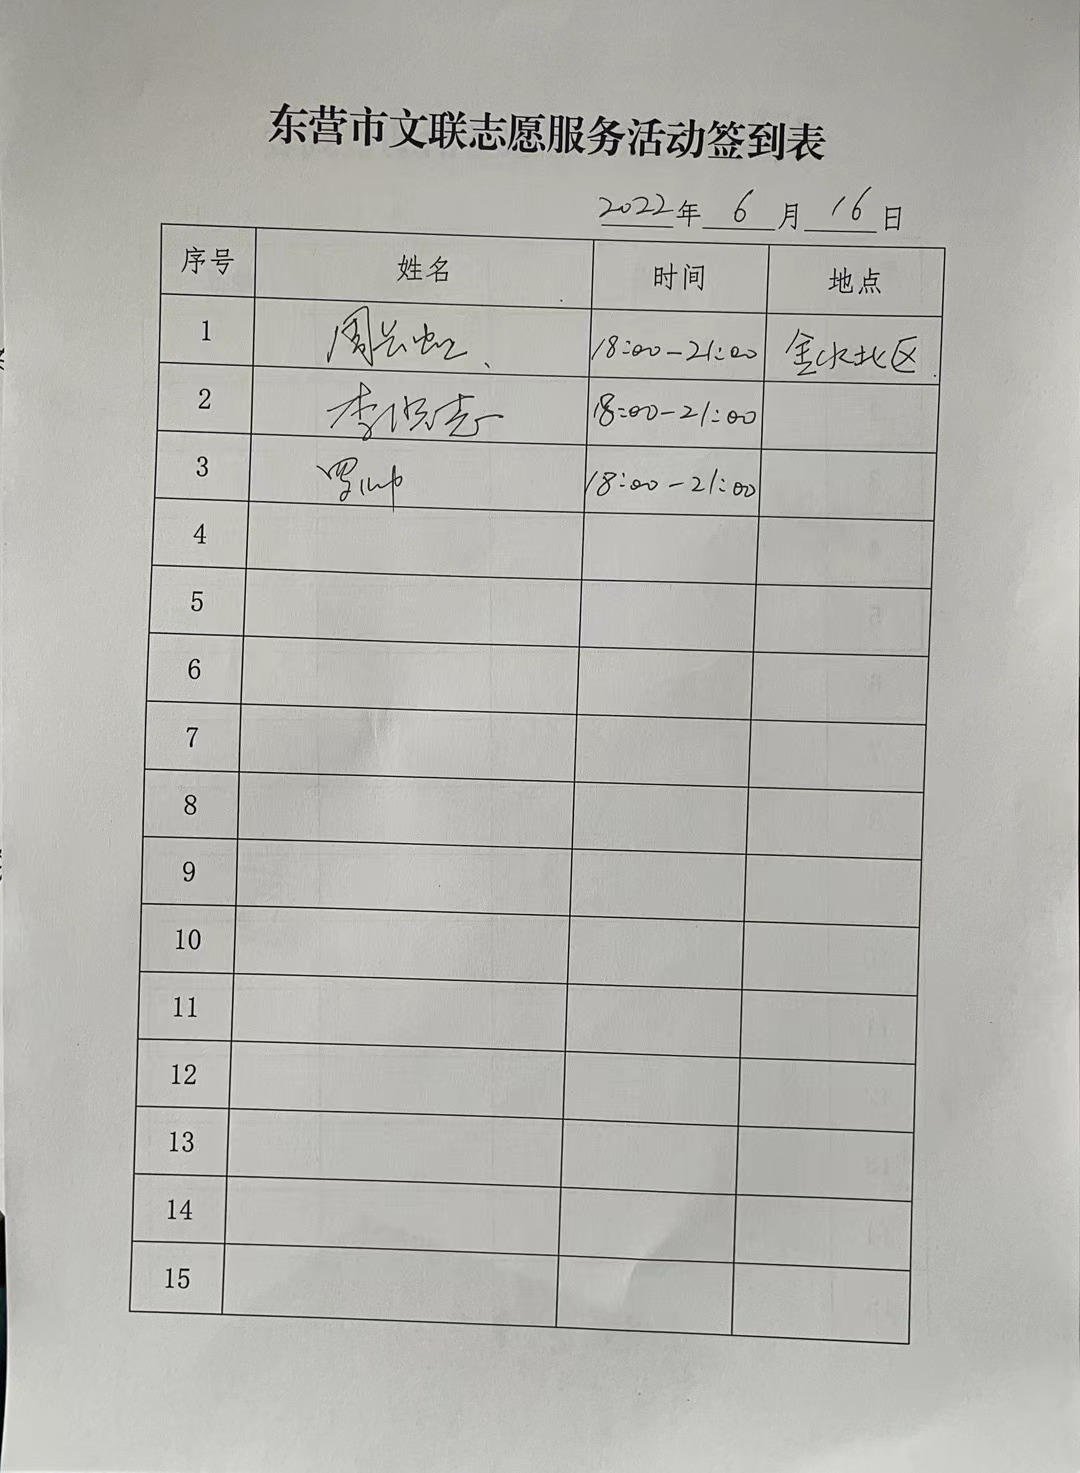 东营市文联志愿服务活动签到表
2022年 6 月 16 日
序号 姓名 时间 地点
1 周兴虹 18:00-21:00 金水北区
2 李 志 18:00-21:00
3 罗帅 18:00-21:00
4
5
6
7
8
9
10
11
12
13
14
15